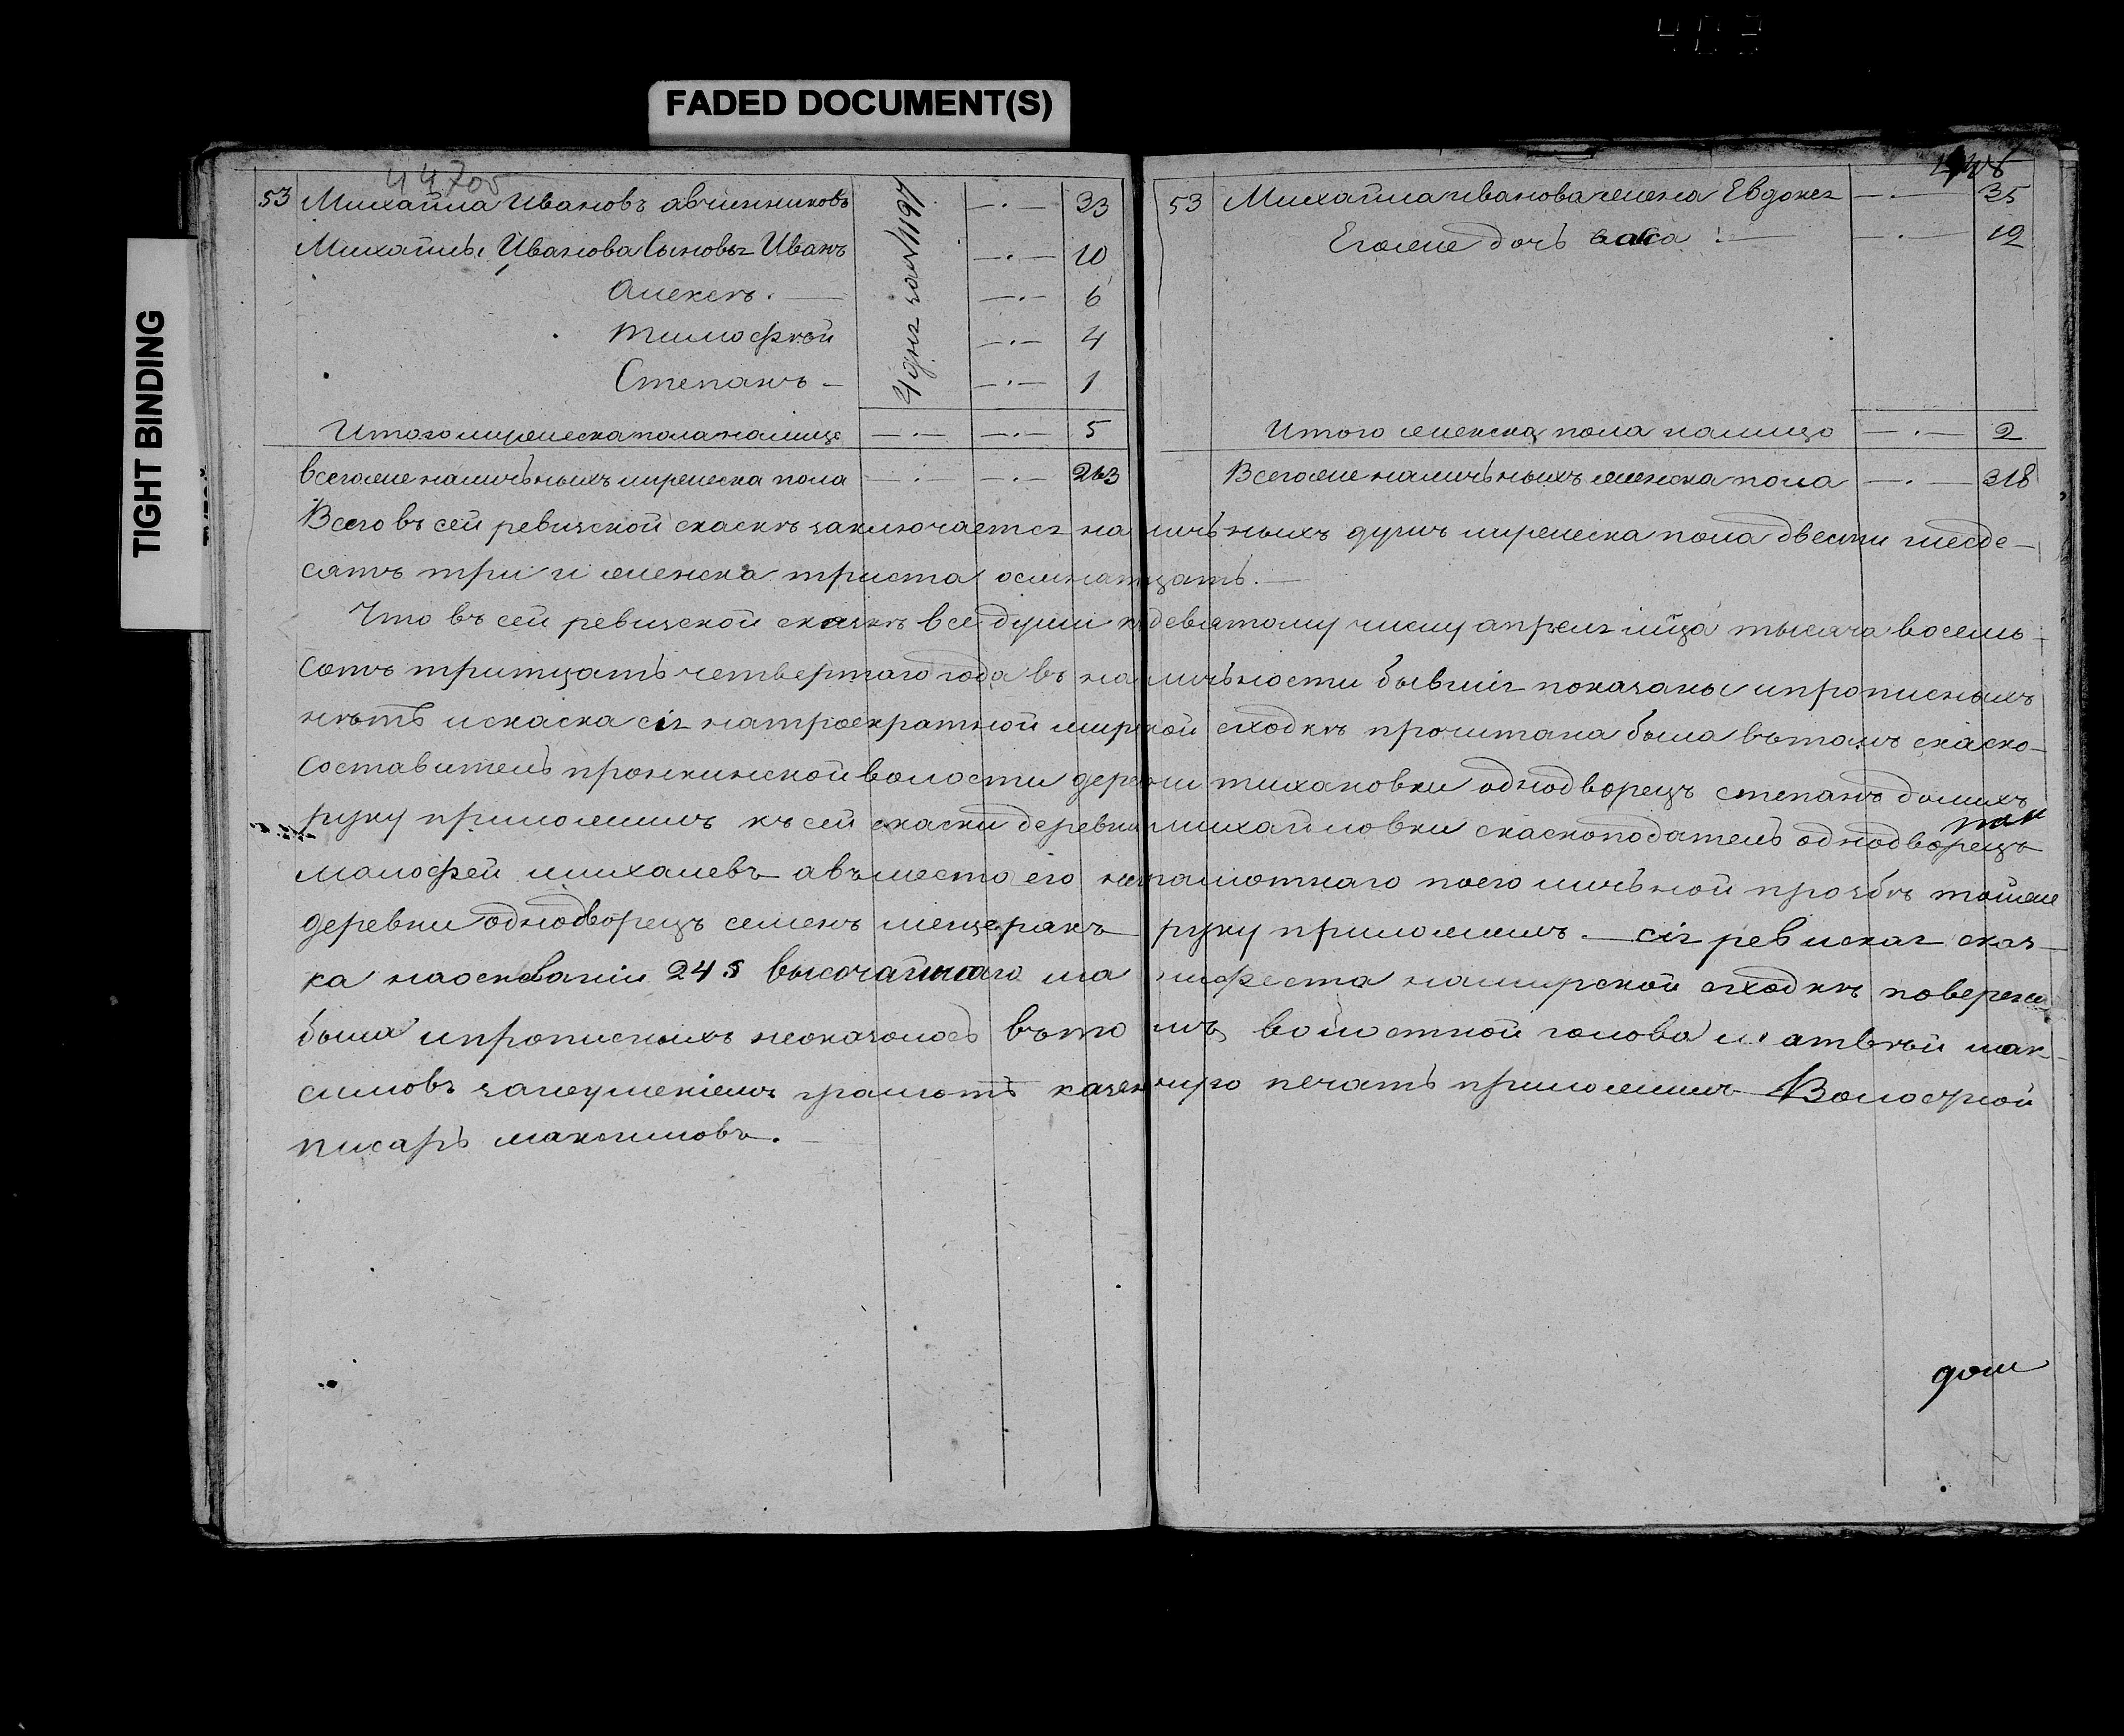 FADED DOCUMENT(S)
TIGHT BINDING
44705
53 Михайла Ивановъ авчинниковъ —·— 33
Михайлы Иванова Сыновья Иванъ —·— 10
Алексъ. —·— 6
тимофѣй —·— 4
Степанъ —·— 1
Итого мужеска пола налице —·— —·— 5
всегоже наличьныхъ мужеска пола —·— —·— 263
53 Михайла иванова жена Евдокея —·— 35
Егоже дочь —·— 12
Итого женска пола налицо —·— 2
Всегоже наличьныхъ женска пола —·— 318
Всего въ сей ревизской скаскѣ заключается наличьныхъ душъ мужеска пола двести шесде-
сятъ три и женска триста осьмнатцать.
Что въ сей ревизской сказкѣ все души к девятому числу апреля мца тысяча восемь-
сотъ тритцать четвертаго года въ наличьности бывшія показаны ипрописныхъ
нѣтъ искаска сія натроекратной мирской сходкѣ прочитана была вътомъ скаско-
составитель пронкинской волости деревни тихановки однодворецъ степанъ
руку приложилъ къ сей скаски деревни михайловки скаскоподатель однодворецъ
малофей михалевъ авъместо его неграмотнаго поего личьной прозбѣ тойже
деревни однодворецъ семенъ мещерякъ руку приложилъ. — сія ревиская сказ-
ка наоснованіи 24 § высочайшаго манифеста намирской сходкѣ поверена
была ипрописныхъ неоказолось вътомъ волостной голова матвѣй мак-
симовъ занеумениемъ грамотѣ казенную печать приложилъ Волостной
писарь максимовъ.